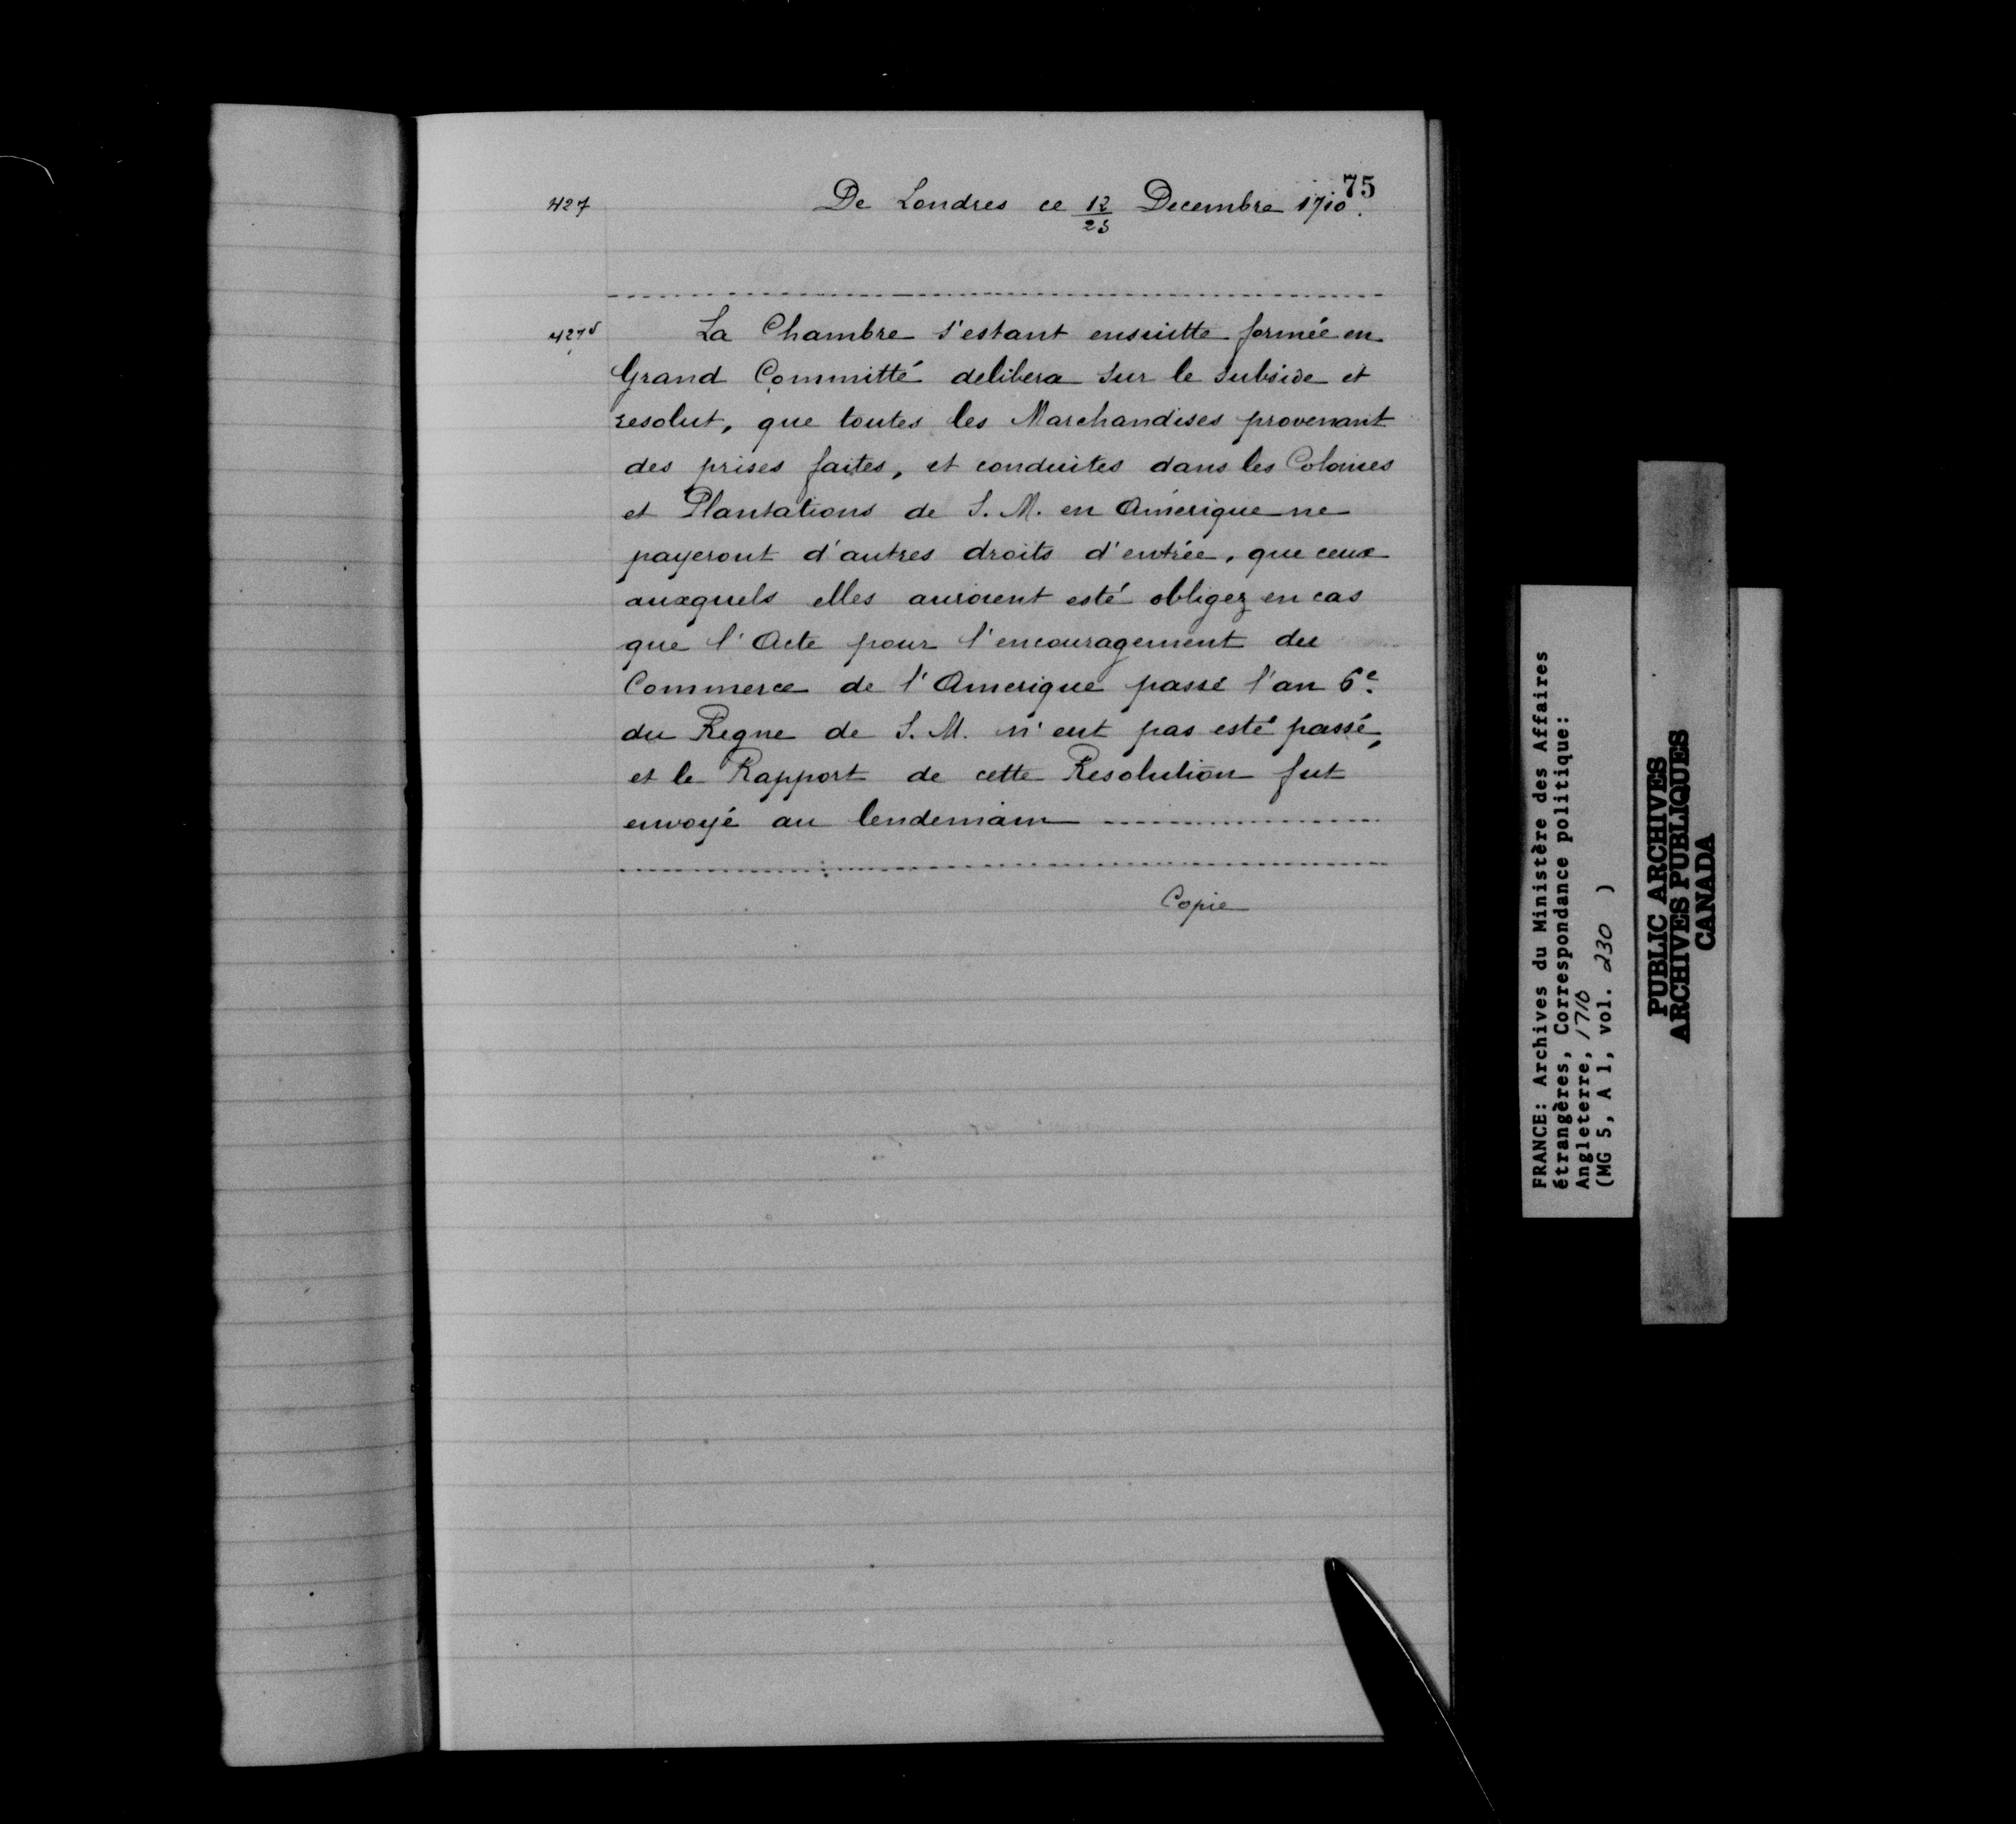 75
427 De Londres ce 12/23 Decembre 1710.
427v La Chambre s'estant ensuitte formée en
Grand Committé delibera sur le subside et
resolut, que toutes les Marchandises provenant
des prises faites, et conduites dans les Colonies
et Plantations de S. M. en Amérique ne
payeront d'autres droits d'entrée, que ceux
auxquels elles auroient esté obligez en cas
que l'Acte pour l'encouragement du
Commerce de l'Amerique passé l'an 6e.
du Regne de S. M. n'eut pas esté passé,
et le Rapport de cette Resolution fut
envoyé au lendemain
Copie
FRANCE: Archives du Ministère des Affaires
étrangères, Correspondance politique:
Angleterre, 1710
(MG 5, A 1, vol. 230 )
PUBLIC ARCHIVES
ARCHIVES PUBLIQUES
CANADA